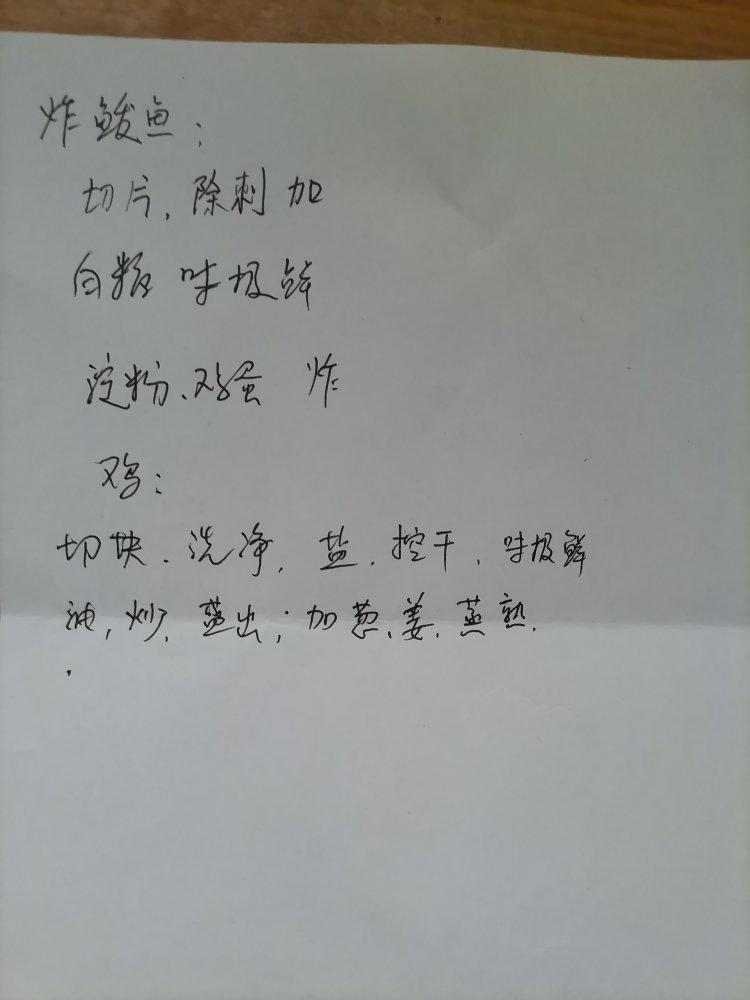 炸鲅鱼:
切片,除刺 加
白糖 味极鲜
淀粉、鸡蛋 炸
鸡:
切块、洗净, 盐、控干、味极鲜
油,炒,盛出;加葱、姜、蒸熟.